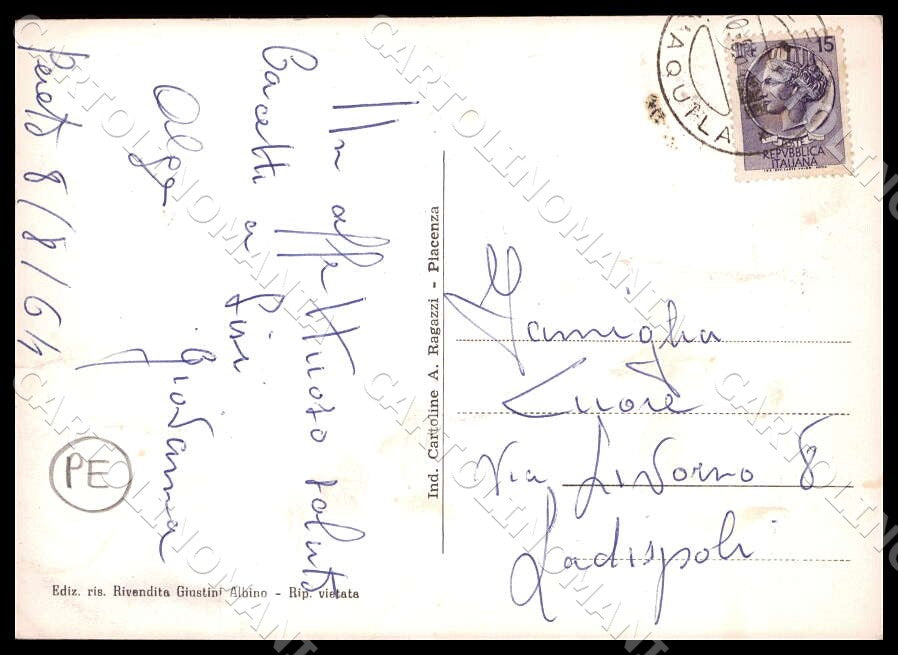 Pereto 8/8/61
Un affettuoso saluto
Olga
Giovanna
PE
Ediz. ris. Rivendita Giustini Albino - Rip. vietata
Ind. Cartoline A. Ragazzi - Piacenza
AQUILA
15
POSTE
REPVBBLICA
ITALIANA
Famiglia
Cuore
Via Livorno 8
Ladispoli
CARTOLINOMANIA